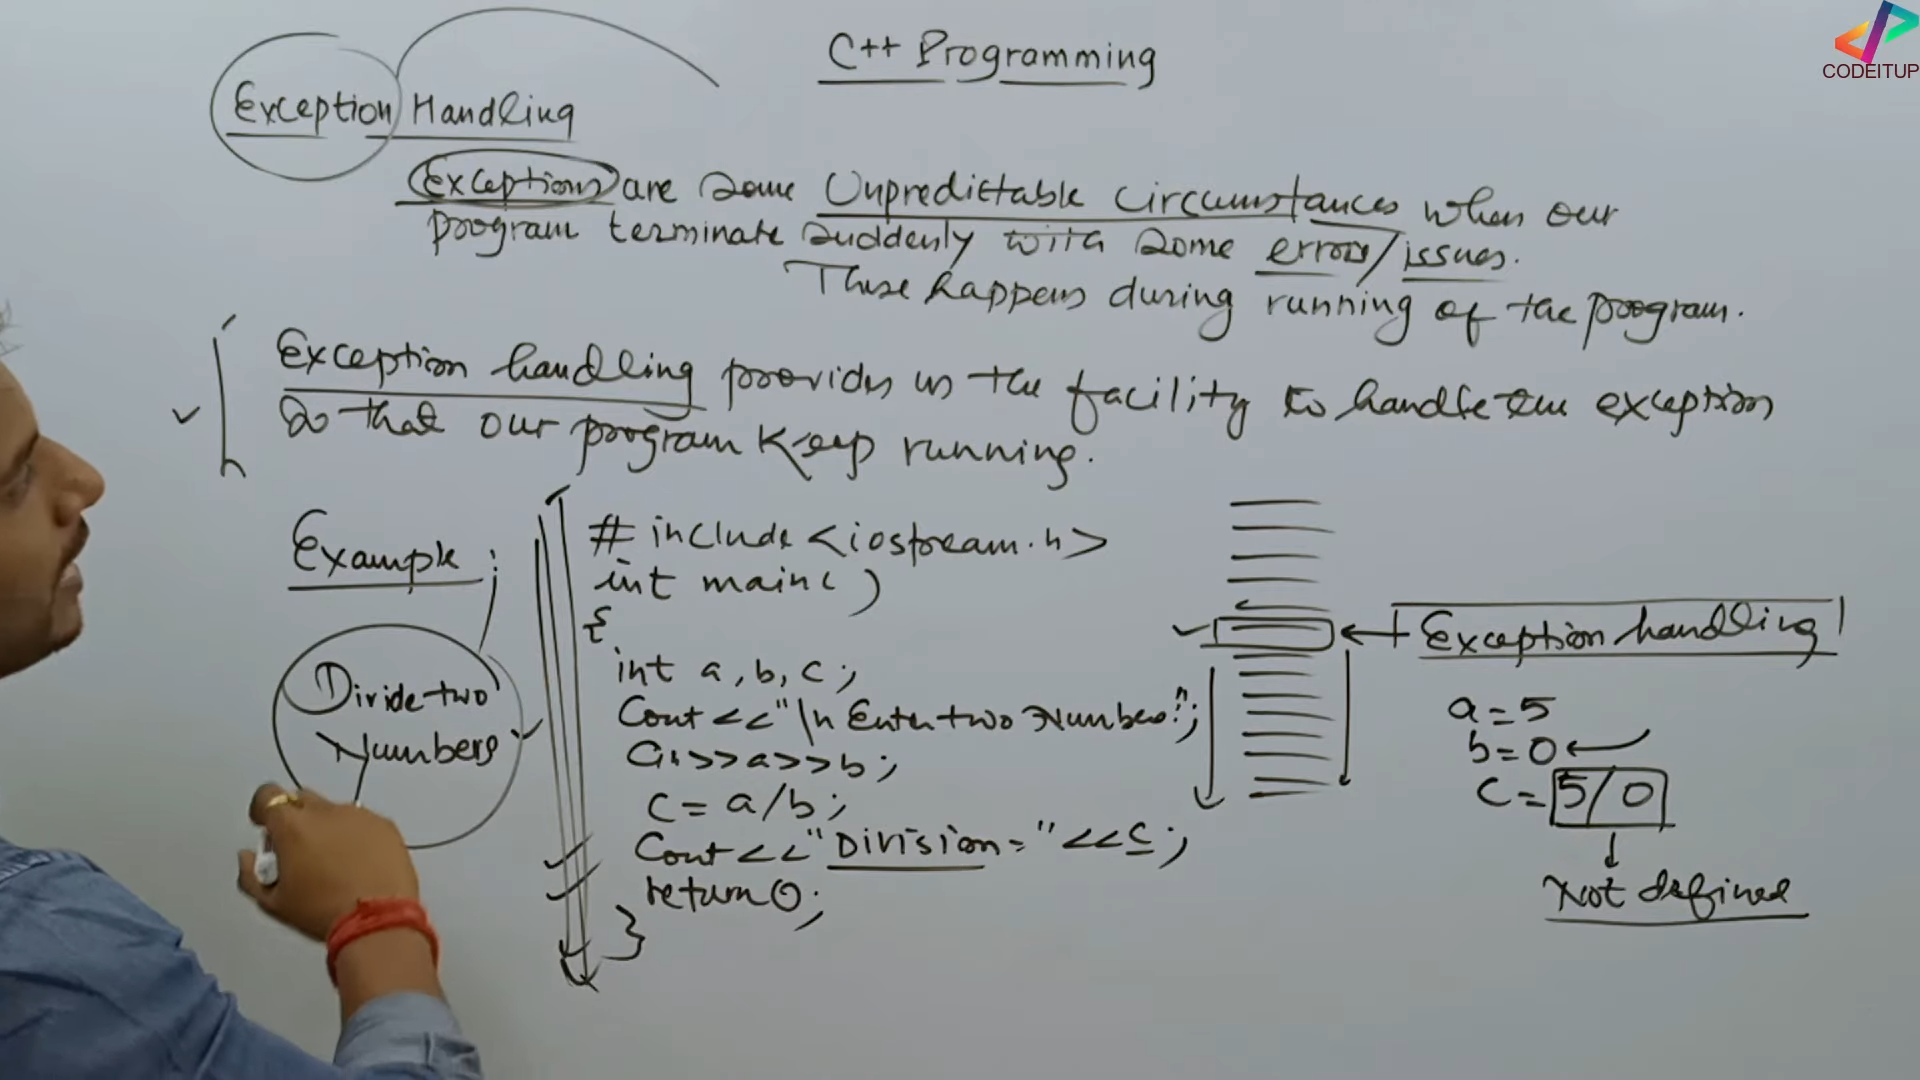 C++ Programming
CODEITUP
Exception Handling
Exceptions are some Unpredictable Circumstances when our
program terminate suddenly with some errors/issues.
These happens during running of the program.
Exception handling provides us the facility to handle the exception
so that our program keep running.
Example:
Divide two
Numbers
# include <iostream.h>
int main( )
{
int a, b, c;
Cout <<"\n Enter two Numbers:";
Cin>>a>>b;
c = a/b;
Cout <<"Division = "<<c;
return 0;
}
Exception handling
a = 5
b = 0
c = 5/0
Not defined